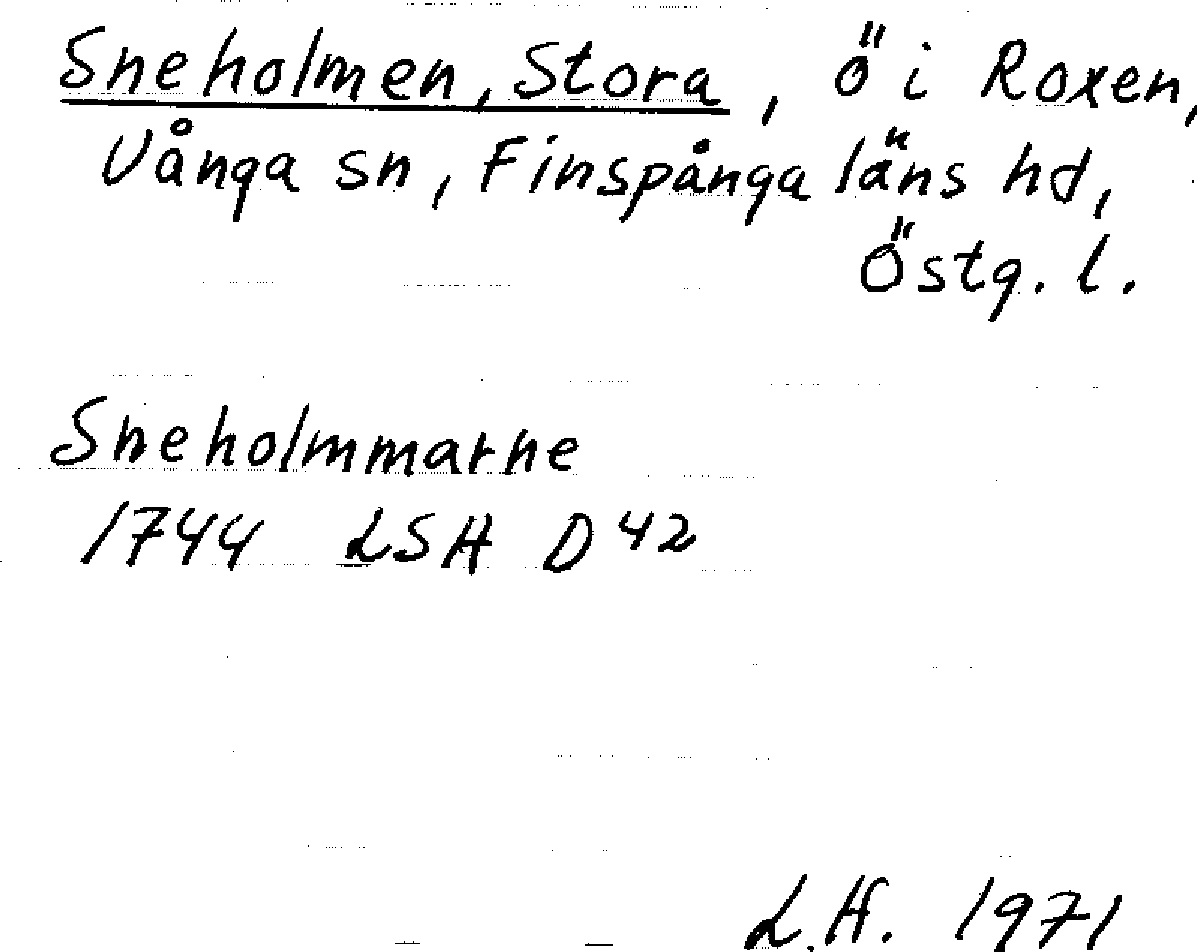 Sneholmen, Stora, ö i Roxen,
Vånga sn, Finspånga läns hd,
Östg. l.
Sneholmmarne
1744 LSA D 42
L.H. 1971